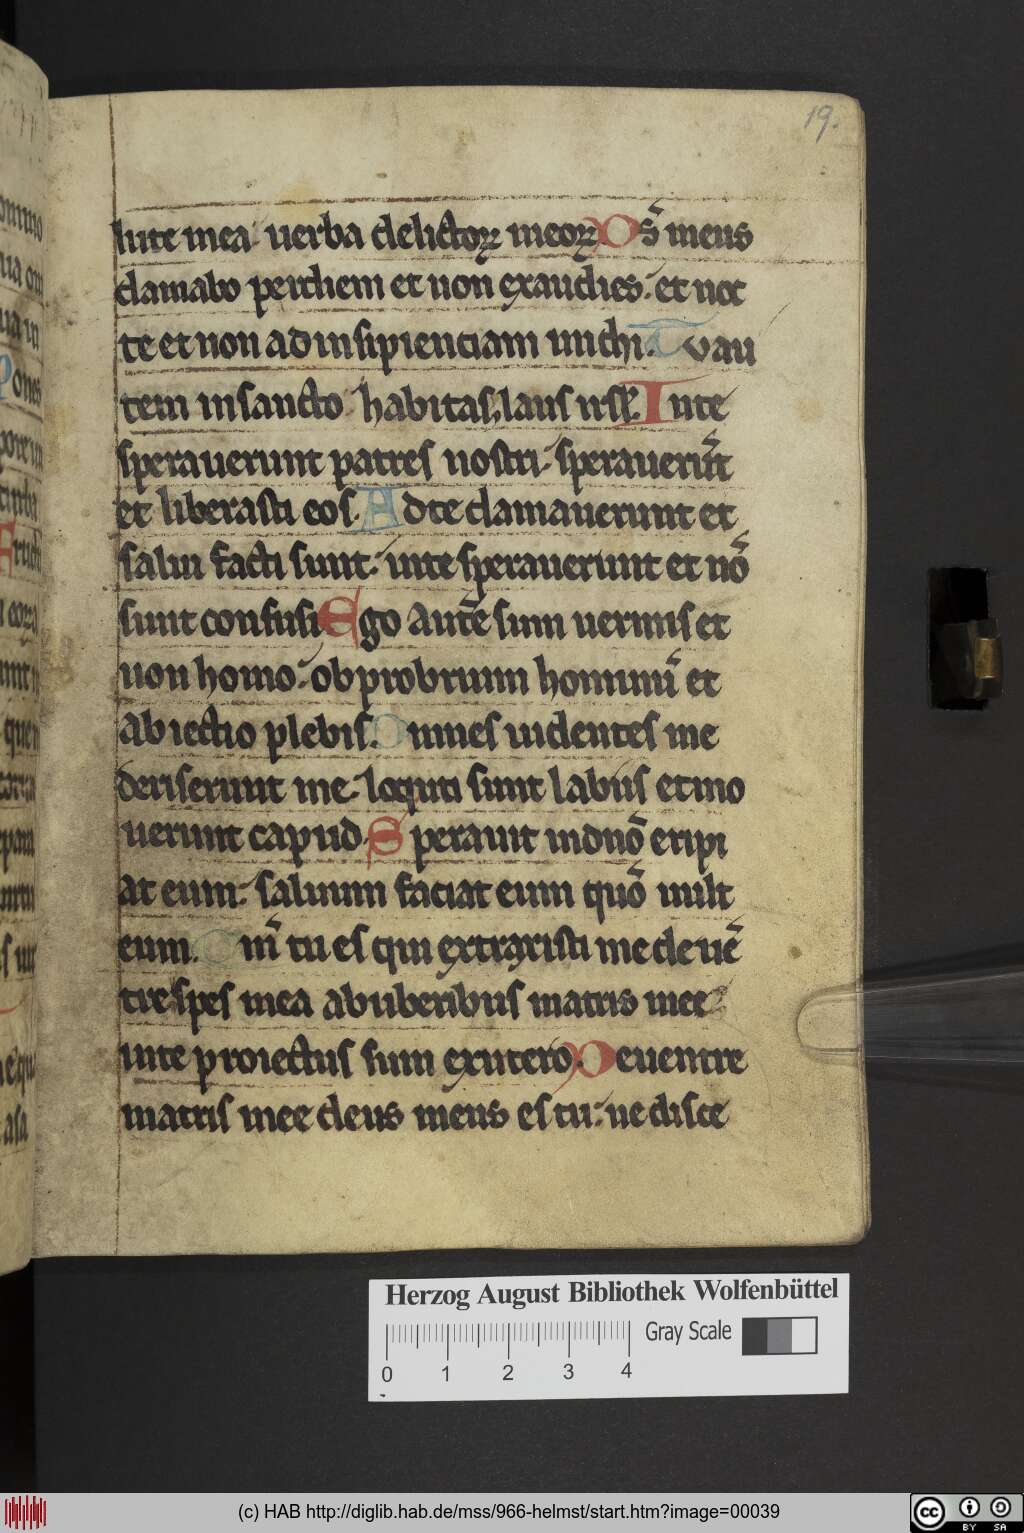 19.
lute mea uerba delictoꝝ meoꝝ Ds̄ meus
clamabo per diem et non exaudies. et noc
te et non ad insipienciam michi. Tv au
tem in sancto habitas, laus isrl̄. In te
sperauerunt patres nostri. sperauerūt
et liberasti eos. Ad te clamauerunt et
salui facti sunt. in te sperauerunt et nō
sunt confusi Ego autē sum uermis et
non homo. obprobrium hominū et
abiectio plebis. Omnes uidentes me
deriserunt me. loquti sunt labiis et mo
uerunt capud. Sperauit in dnō eripi
at eum. saluum faciat eum quō uult
eum. Qm̄ tu es qui extraxisti me de uē
tre spes mea ab uberibus matris mee
in te proiectus sum ex utero. De uentre
matris mee deus meus es tu. ne disce
Herzog August Bibliothek Wolfenbüttel
Gray Scale
0 1 2 3 4
(c) HAB http://diglib.hab.de/mss/966-helmst/start.htm?image=00039
cc BY SA